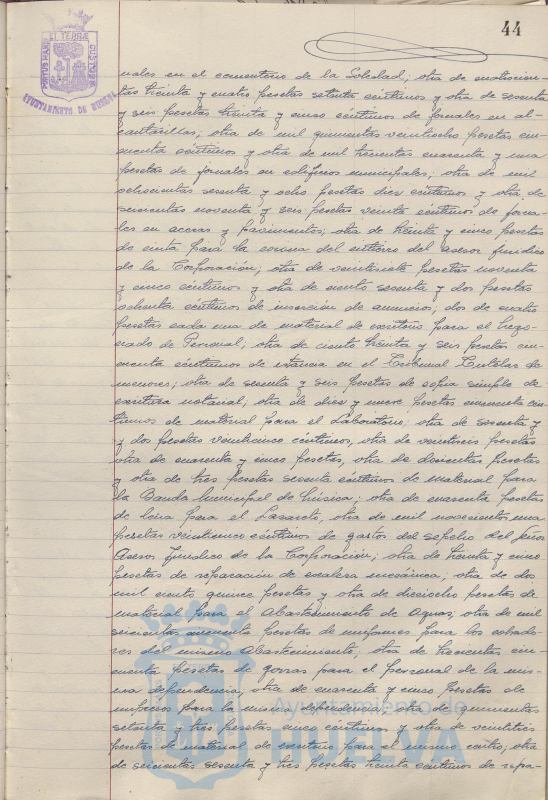 44
PORTUS MARIS
ET TERRÆ
CUSTODIA
AYUNTAMIENTO DE HUELVA
nales en el cementerio de la Soledad; otra de
tas treinta y cuatro pesetas setenta céntimos y otra de sesenta
y seis pesetas treinta y cinco céntimos de jornales en al-
cantarillas; otra de mil quinientas veintiocho pesetas cin-
cuenta céntimos y otra de mil trescientas cuarenta y una
pesetas de jornales en edificios municipales; otra de mil
ochocientas sesenta y ocho pesetas diez céntimos y otra de
seiscientas noventa y seis pesetas veinte céntimos de jorna-
les en aceras y pavimentos; otra de treinta y cinco pesetas
de cinta para la corona del entierro del asesor jurídico
de la Corporación; otra de veintisiete pesetas noventa
y cinco céntimos y otra de ciento sesenta y dos pesetas
ochenta céntimos de inserción de anuncios; dos de cuatro
pesetas cada una de material de escritorio para el Nego-
ciado de Personal; otra de ciento treinta y seis pesetas cin-
cuenta céntimos de estancia en el Tribunal Tutelar de
menores; otra de sesenta y seis pesetas de copia simple de
escritura notarial, otra de diez y nueve pesetas cincuenta cén-
timos de material para el Laboratorio, otra de sesenta y
y dos pesetas veinticinco céntimos, otra de veintiseis pesetas
otra de cuarenta y cinco pesetas, otra de doscientas pesetas
y otra de tres pesetas sesenta céntimos de material para
la Banda Municipal de Música; otra de cuarenta pesetas
de leña para el Lazareto, otra de mil novecientas una
pesetas veinticinco céntimos de gastos del sepelio del
Asesor Jurídico de la Corporación; otra de treinta y cinco
pesetas de reparación de escalera mecánica; otra de dos
mil ciento quince pesetas y otra de dieciocho pesetas de
material para el Abastecimiento de Aguas; otra de mil
seiscientas cincuenta pesetas de uniformes para los cobado-
res del mismo Abastecimiento, otra de trescientas cin-
cuenta pesetas de gorras para el personal de la mis-
ma dependencia, otra de cuarenta y cinco pesetas de
impresos para la misma dependencia, otra de quinientas
setenta y tres pesetas cinco céntimos y otra de veintitrés
pesetas de material de escritorio para el mismo centro, otra
de seiscientas sesenta y tres pesetas treinta céntimos de repa-
Ayuntamiento de
HUELVA